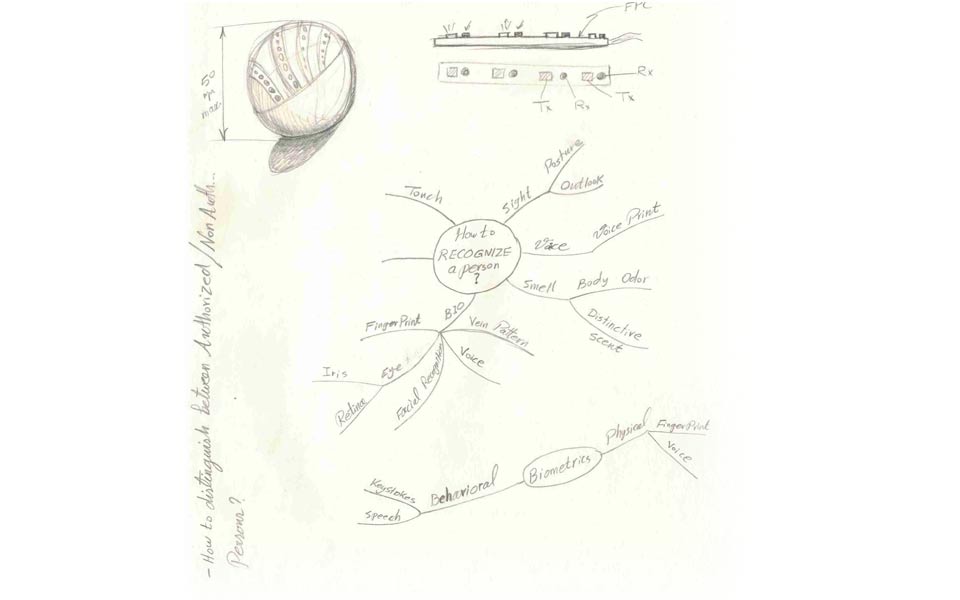 FPC
max 50
Rx
Tx
Rx
Tx
How to
RECOGNIZE
a person
?
Touch
Sight
Posture
Outlook
Voice
Voice Print
Smell
Body Odor
Distinctive
Scent
BIO
FingerPrint
Vein Pattern
Voice
Eye
Iris
Retina
Facial Recognition
Biometrics
Physical
FingerPrint
Voice
Behavioral
Keystokes
Speech
- How to distinguish between Authorized/Non Auth...
Persons?